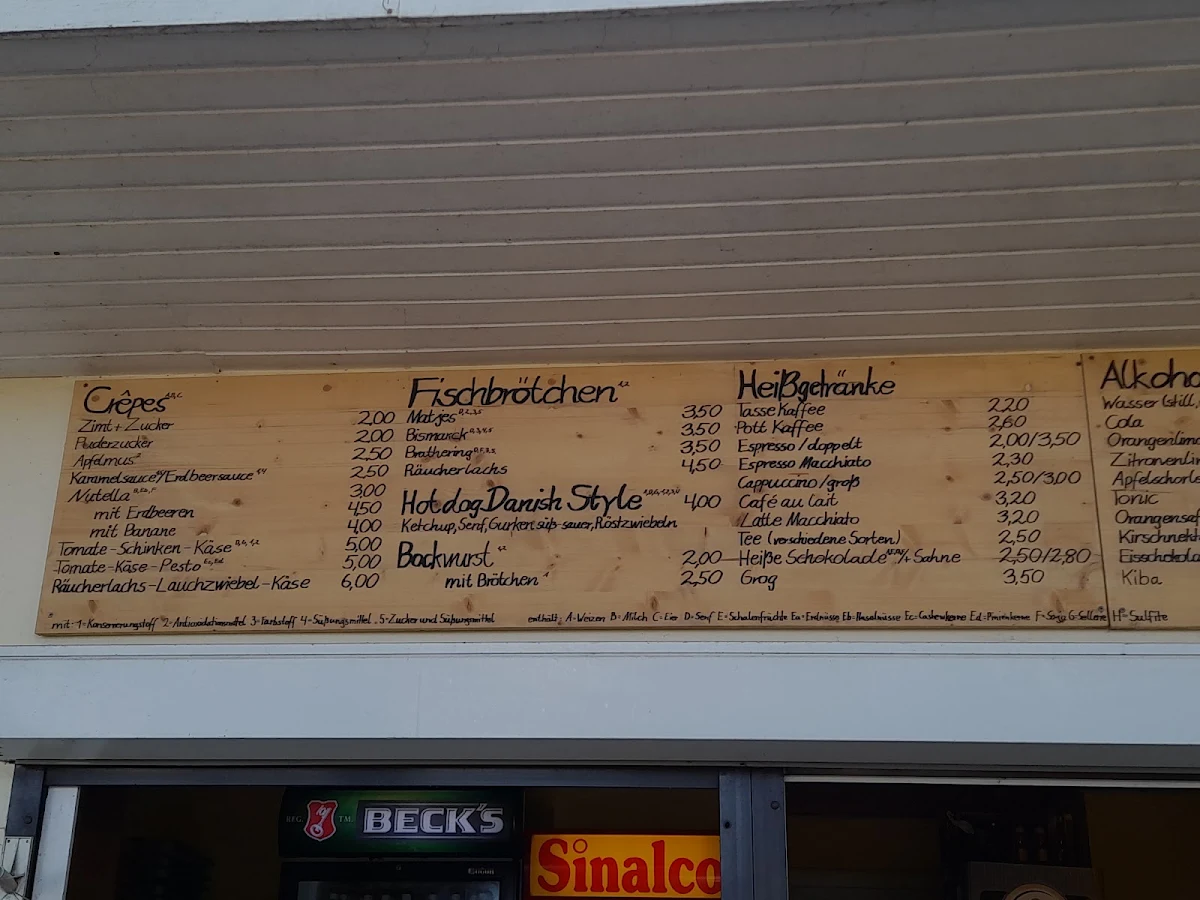 Crêpes A,B,C
Zimt + Zucker 2,00
Puderzucker 2,00
Apfelmus 2,50
Karamelsauce/Erdbeersauce 1,4 2,50
Nutella 3,00
mit Erdbeeren 4,50
mit Banane 4,00
Tomate-Schinken-Käse 5,00
Tomate-Käse-Pesto 5,00
Räucherlachs-Lauchzwiebel-Käse 6,00
Fischbrötchen 1,2
Matjes 3,50
Bismarck 3,50
Brathering 3,50
Räucherlachs 4,50
Hot dog Danish Style 4,00
Ketchup, Senf, Gurken süß-sauer, Röstzwiebeln
Bockwurst 2,00
mit Brötchen 2,50
Heißgetränke
Tasse Kaffee 2,20
Pott Kaffee 2,60
Espresso / doppelt 2,00/3,50
Espresso Macchiato 2,30
Cappuccino / groß 2,50/3,00
Café au lait 3,20
Latte Macchiato 3,20
Tee (verschiedene Sorten) 2,50
Heiße Schokolade /+ Sahne 2,50/2,80
Grog 3,50
Alkoho
Wasser (still,
Cola
Orangenlimo
Zitronenlim
Apfelschorle
Tonic
Orangensaf
Kirschnekt
Eisschokola
Kiba
mit: 1=Konservierungsstoff 2=Antioxidationsmittel 3=Farbstoff 4=Süßungsmittel 5=Zucker und Süßungsmittel enthält: A=Weizen B=Milch C=Eier D=Senf E=Schalenfrüchte Ea=Erdnüsse Eb=Haselnüsse Ec=Cashewkerne Ed=Pinienkerne F=Soja G=Sellerie H=Sulfite
REG. TM. BECK'S
Sinalco